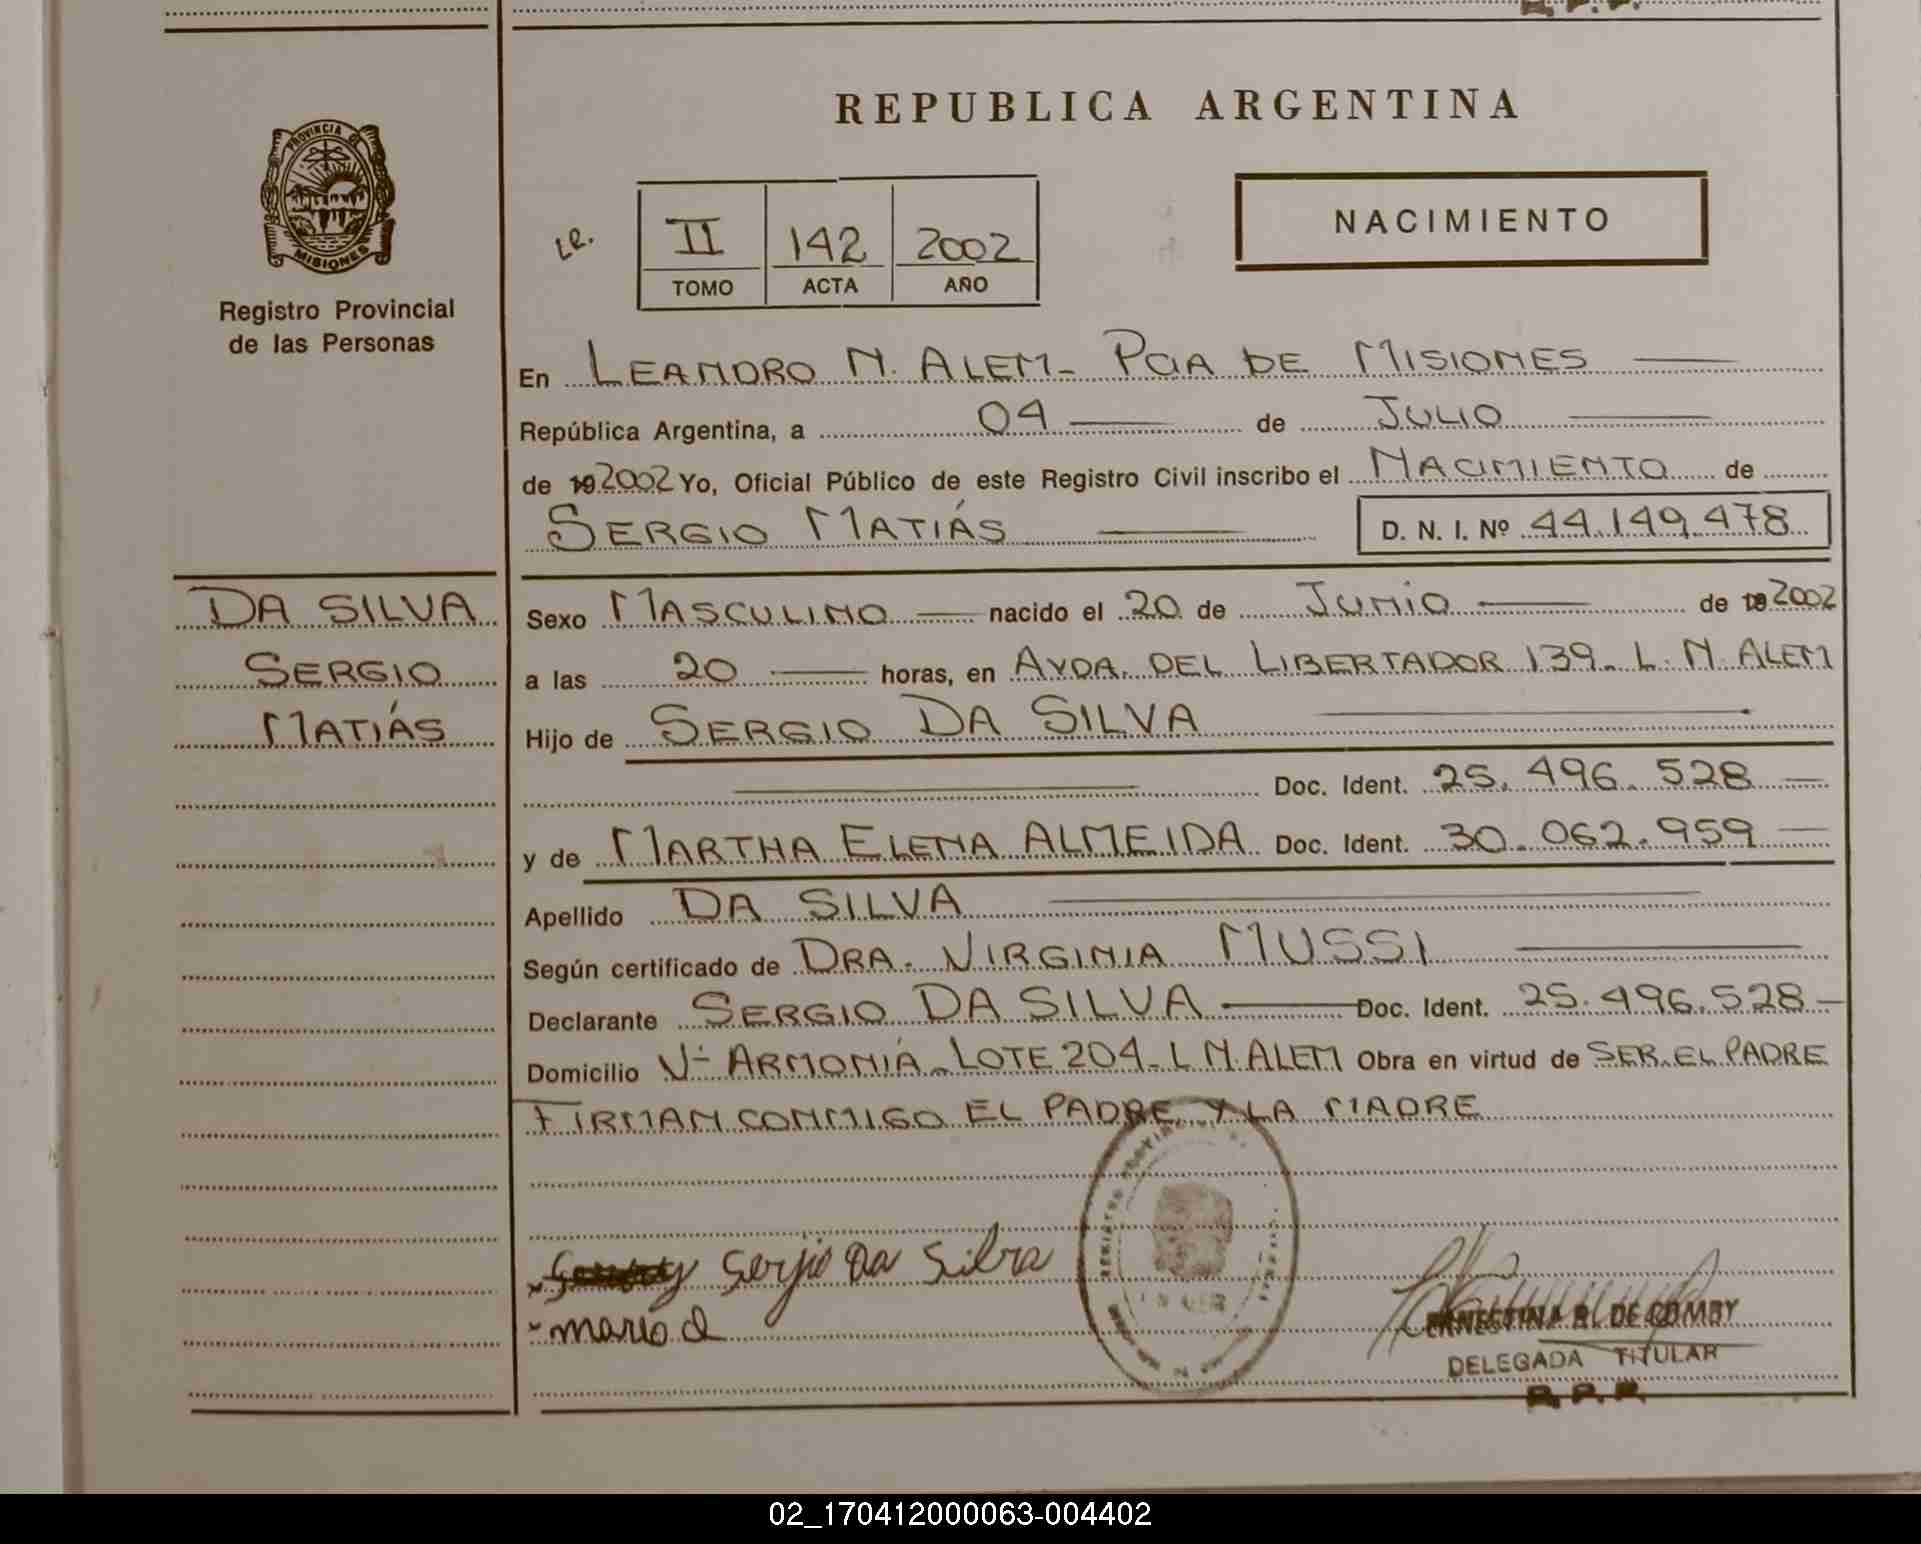 REPUBLICA ARGENTINA
PROVINCIA DE
MISIONES
Registro Provincial
de las Personas
II 142 2002
TOMO ACTA AÑO
NACIMIENTO
En LEANDRO N. ALEM - PCIA DE MISIONES
República Argentina, a 04 de JULIO
de 19 2002 Yo, Oficial Público de este Registro Civil inscribo el NACIMIENTO de
SERGIO MATIÁS D. N. I. Nº 44.149.478
DA SILVA
SERGIO
MATIÁS
Sexo MASCULINO nacido el 20 de JUNIO de 19 2002
a las 20 horas, en AVDA. DEL LIBERTADOR 139 - L. N. ALEM
Hijo de SERGIO DA SILVA
Doc. Ident. 25.496.528
y de MARTHA ELENA ALMEIDA Doc. Ident. 30.062.959
Apellido DA SILVA
Según certificado de DRA. VIRGINIA MUSSI
Declarante SERGIO DA SILVA Doc. Ident. 25.496.528
Domicilio Vª ARMONIA - LOTE 204 - L N. ALEM Obra en virtud de SER EL PADRE
FIRMAN CONMIGO EL PADRE Y LA MADRE
Serjio Da Silva
ERNESTINA R. DE COMBY
DELEGADA TITULAR
R. P. P.
02_170412000063-004402